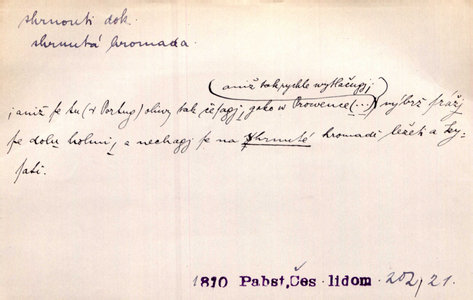 shrnouti dok.
shrnutá hromada.
(aniž tak rychle wytlačugj,
; aniž se tu (v Portug) oliwy tak češagj, gako w Prowence (...) nýbrž sráž,
se dolu holmi, a nechagj se na shrnuté hromadě ležeti a ky-
sati.
1810 Pabst, Čes. lidom. 202, 21.